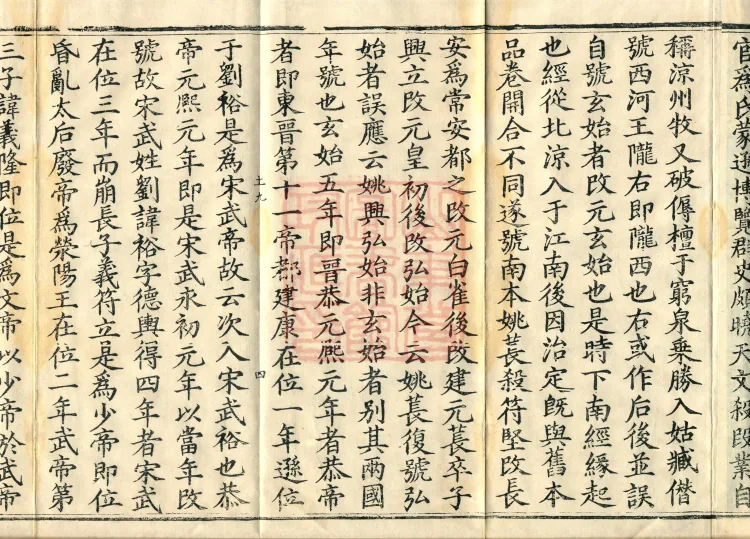 官爲氏蒙遜博覽群史頗曉天文殺段業自
稱涼州牧又破傉檀于窮泉乗勝入姑臧僣
號西河王隴右即隴西也右或作后後並誤
自號玄始者改元玄始也是時下南經縁起
也經從北涼入于江南後因治定旣與舊本
品卷開合不同遂號南本姚萇殺符堅改長
安爲常安都之改元白雀後改建元萇卒子
興立改元皇初後改弘始今云姚萇復號弘
始者誤應云姚興弘始非玄始者別其兩國
年號也玄始五年即晉恭元熈元年者恭帝
者即東晉第十一帝都建康在位一年遜位
土九 四
于劉裕是爲宋武帝故云次入宋武裕也恭
帝元熈元年即是宋武永初元年以當年改
號故宋武姓劉諱裕字德輿得四年者宋武
在位三年而崩長子義符立是爲少帝即位
昏亂太后廢帝爲滎陽王在位二年武帝第
三子諱義隆即位是爲文帝以少帝於武帝